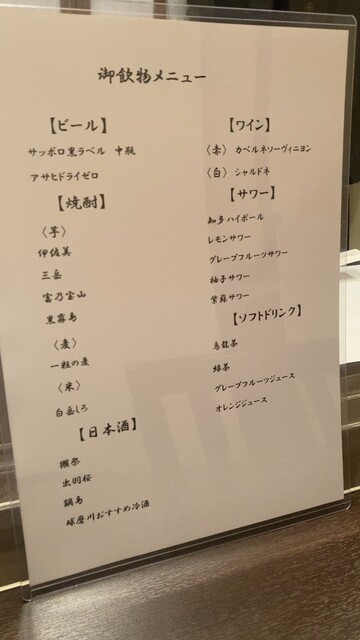 御飲物メニュー
【ビール】
サッポロ黒ラベル 中瓶
アサヒドライゼロ
【焼酎】
〈芋〉
伊佐美
三岳
富乃宝山
黒霧島
〈麦〉
一粒の麦
〈米〉
白岳しろ
【日本酒】
獺祭
出羽桜
鍋島
球磨川おすすめ冷酒
【ワイン】
〈赤〉 カベルネソーヴィニヨン
〈白〉 シャルドネ
【サワー】
知多ハイボール
レモンサワー
グレープフルーツサワー
柚子サワー
紫蘇サワー
【ソフトドリンク】
烏龍茶
緑茶
グレープフルーツジュース
オレンジジュース